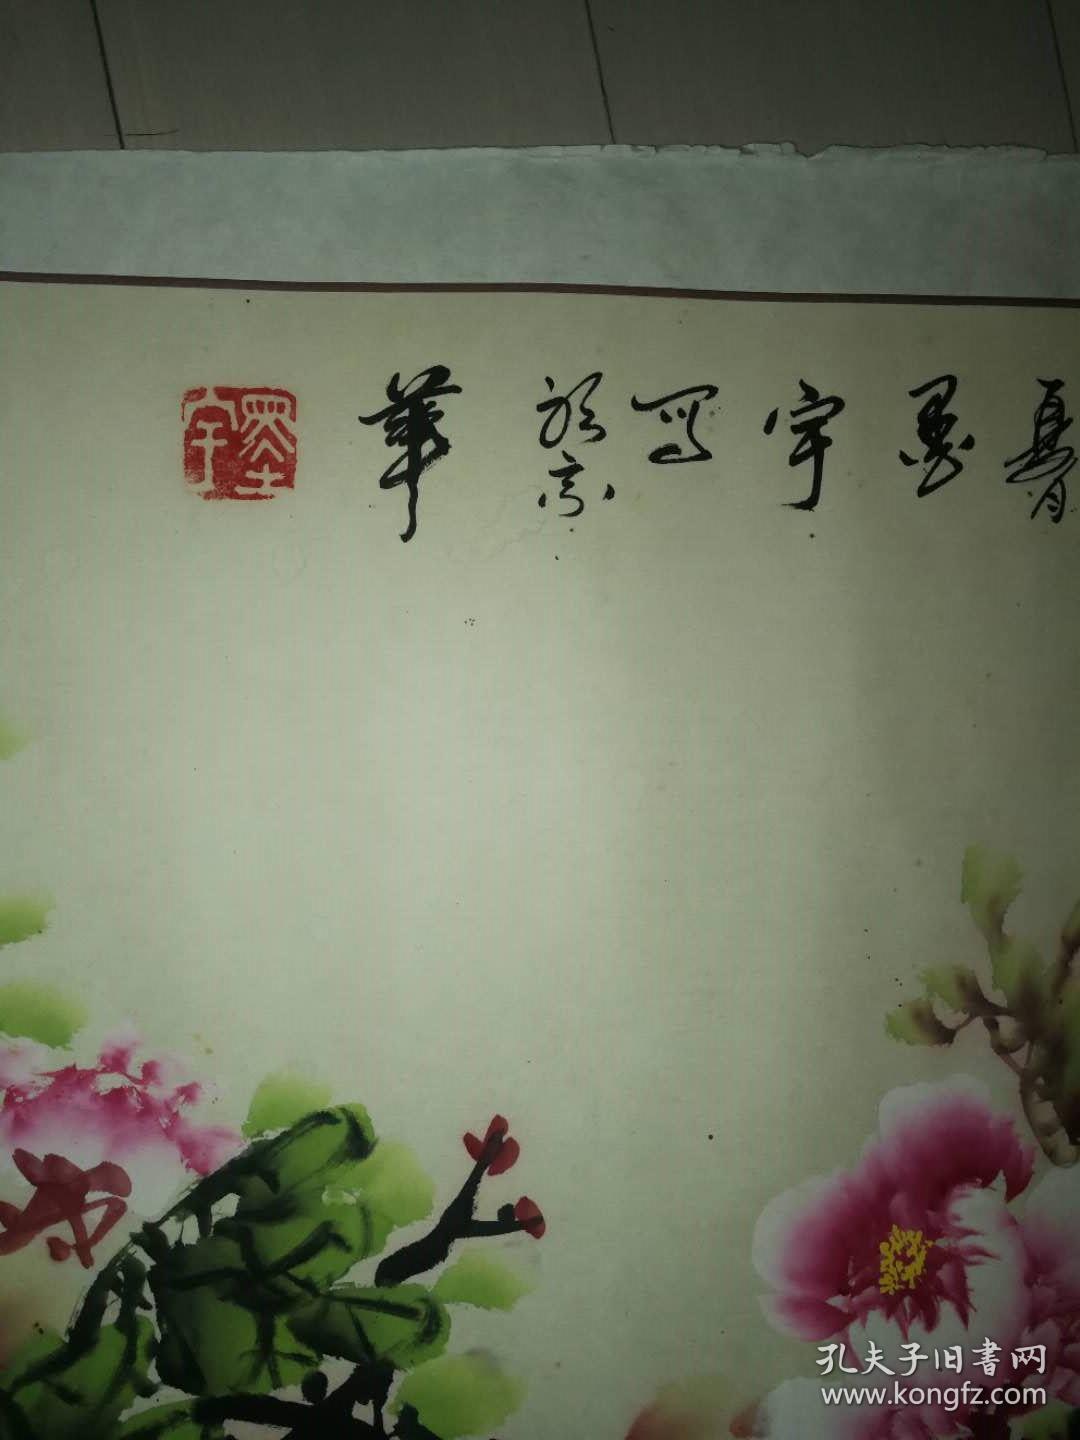 夏月墨宇寫於京華
墨宇
孔夫子旧書网
www.kongfz.com